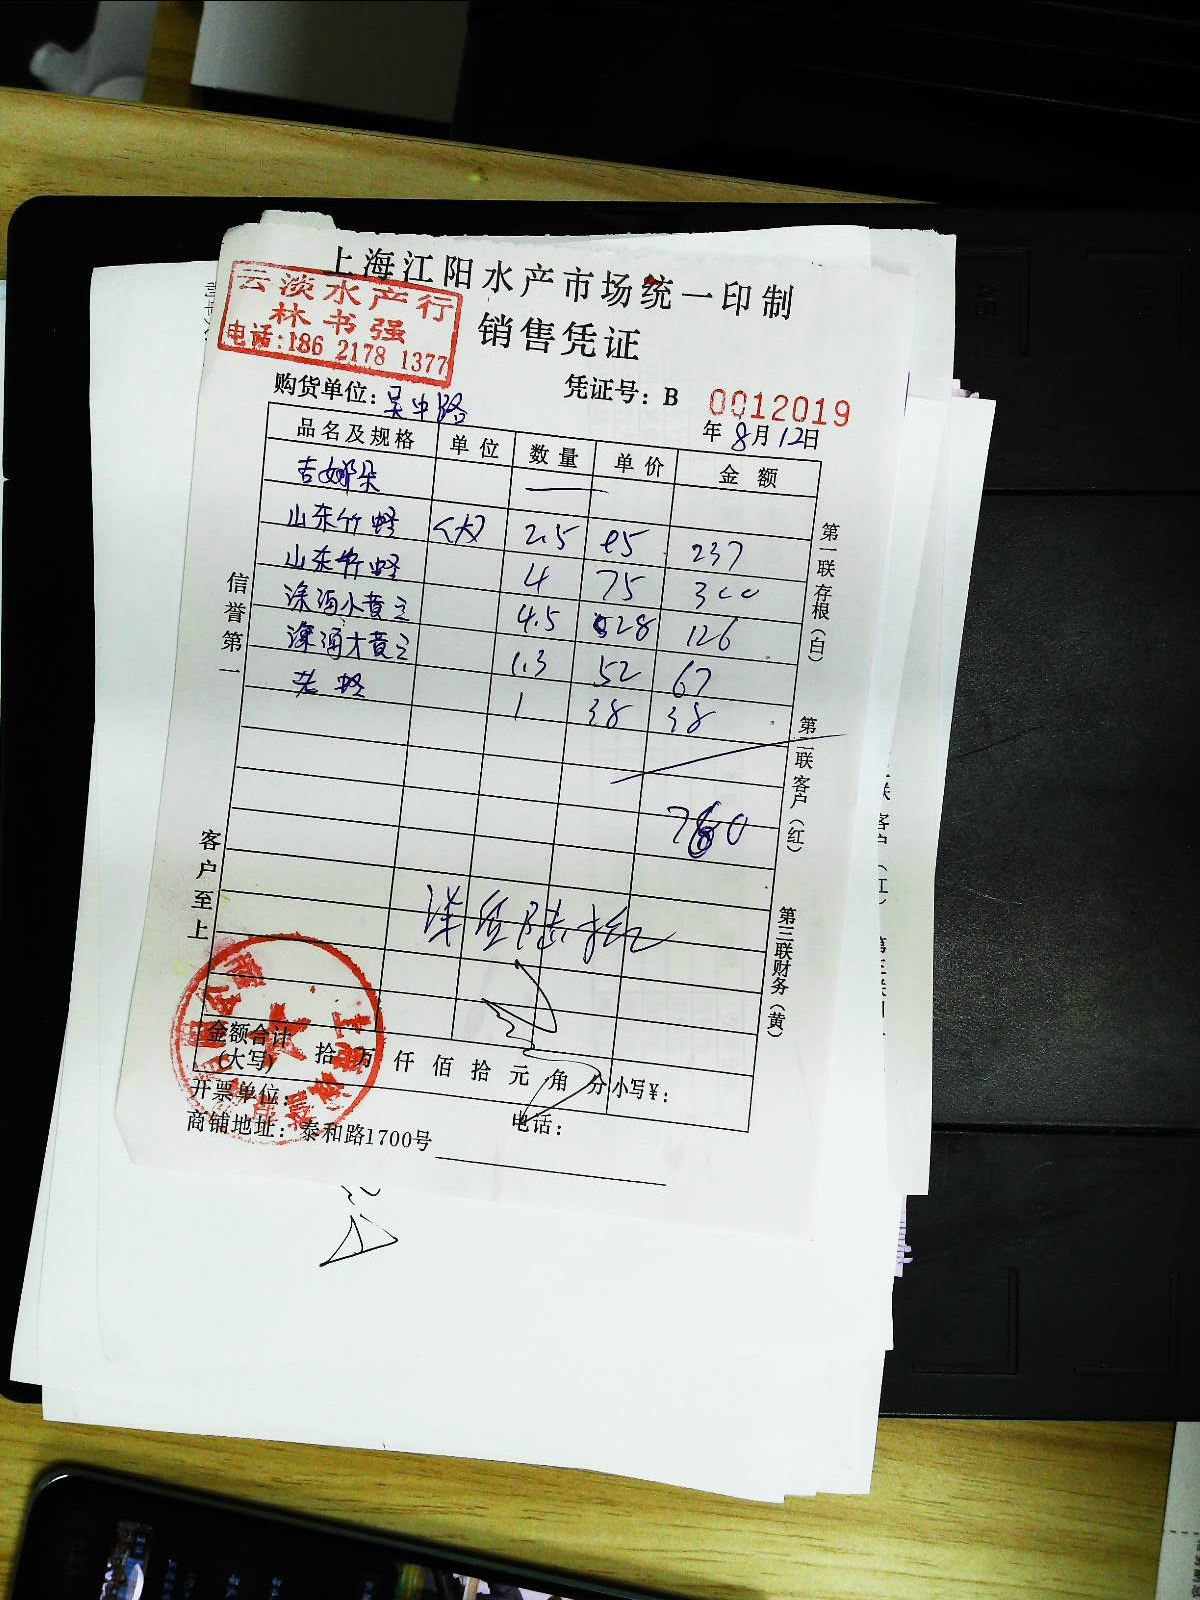 上海江阳水产市场统一印制
云淡水产行
林书强
电话:186 2178 1377
销售凭证
购货单位:吴中路
凭证号: B 0012019
年8月12日
品名及规格 单位 数量 单价 金额
吉娜朵 —
山东竹蛏 <大> 2.5 95 237
山东竹蛏 4 75 300
深海小黄 4.5 28 126
深海大黄 1.3 52 67
老蛏 1 38 38
760
柒佰陆拾
信誉第一
客户至上
第一联存根(白)
第二联客户(红)
第三联财务(黄)
金额合计
(大写) 拾 万 仟 佰 拾 元 角 分 小写¥:
开票单位:
电话:
商铺地址: 泰和路1700号